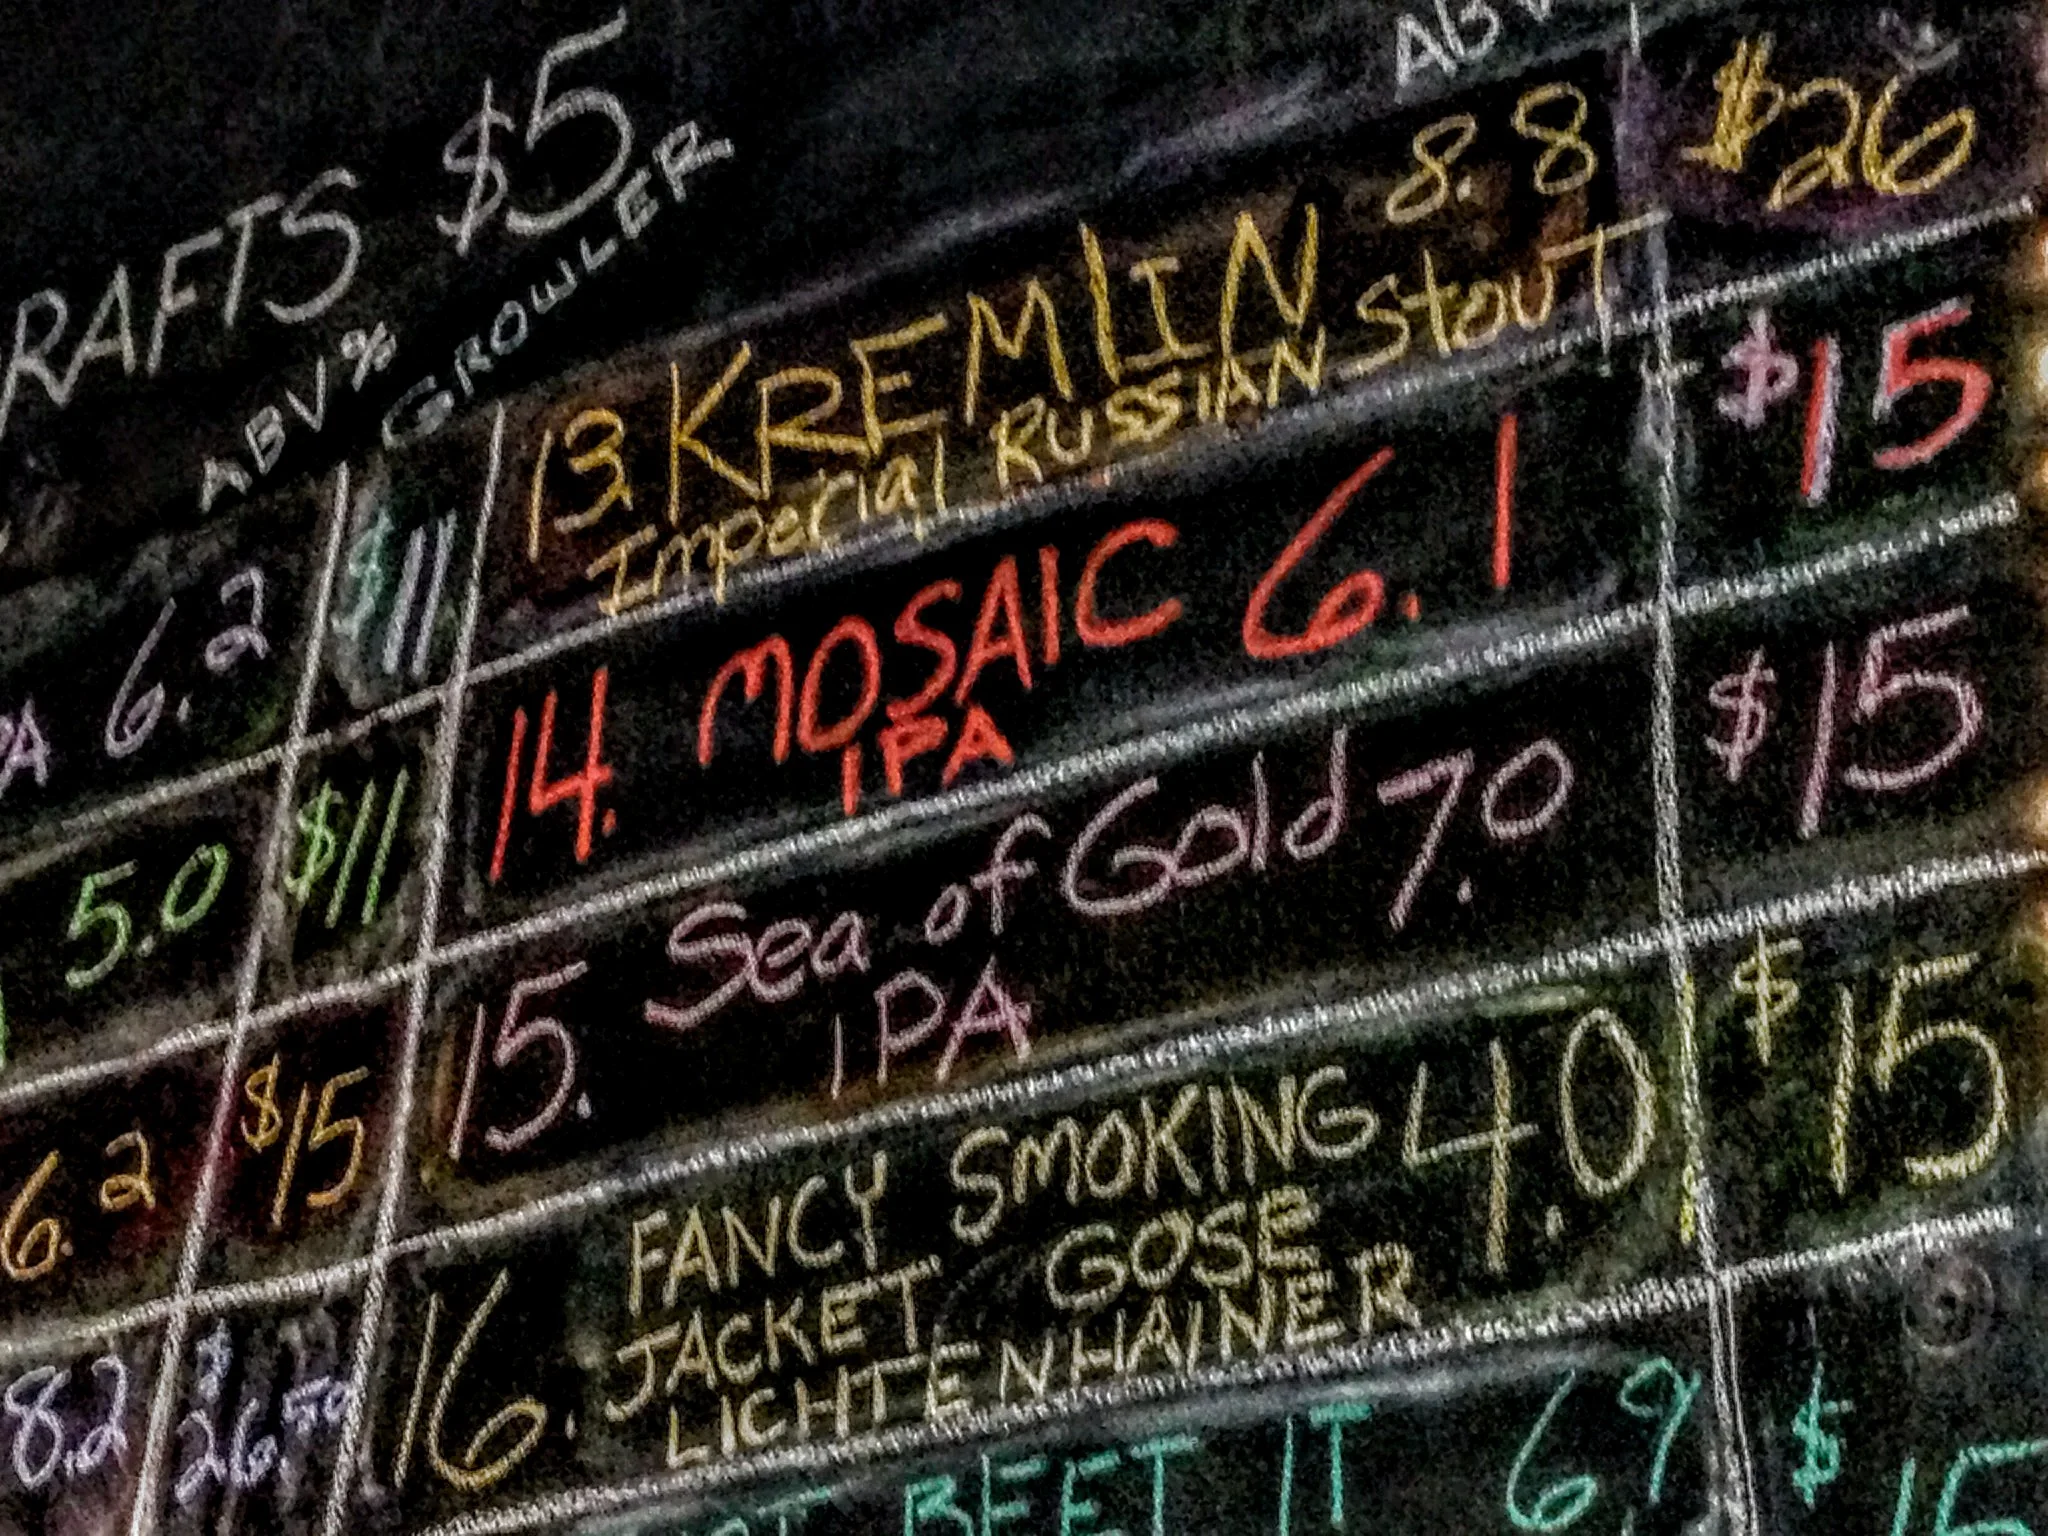 RAFTS $5
ABV%
GROWLER
6.2 $11
5.0 $11
6.2 $15
8.2 $26.50
ABV
13. KREMLIN 8.8 $26
Imperial RUSSIAN Stout
14. MOSAIC 6.1 $15
IPA
15. Sea of Gold 7.0 $15
IPA
16. FANCY SMOKING 4.0 $15
JACKET GOSE
LICHTENHAINER
BEET IT 6.9 $15